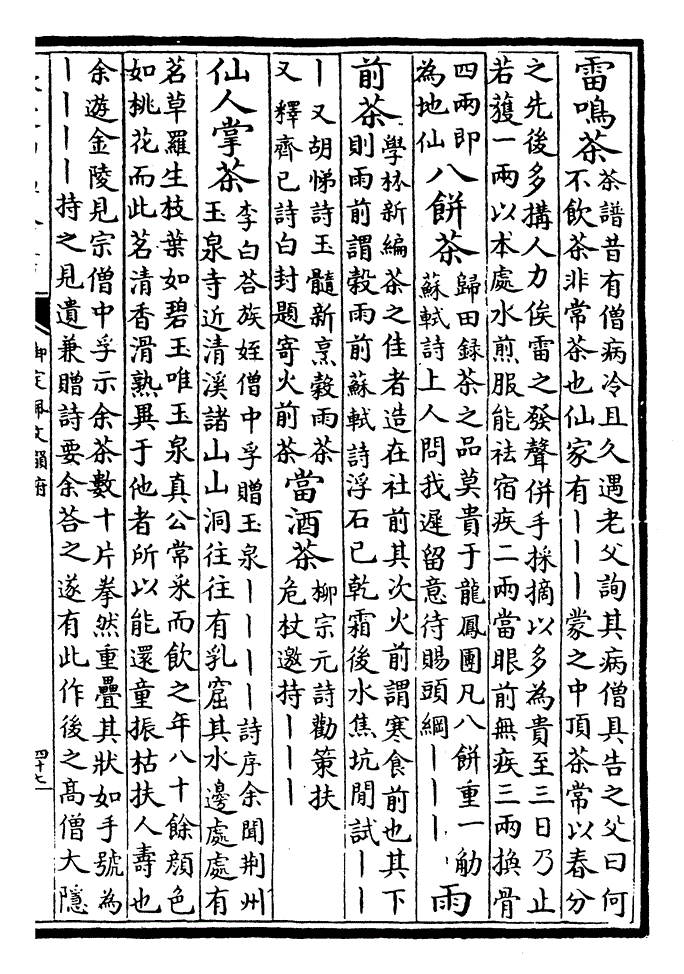 雷鳴茶
茶譜昔有僧病冷且久遇老父詢其病僧具告之父曰何
不飲茶非常茶也仙家有丨丨丨蒙之中頂茶常以春分
之先後多搆人力俟雷之發聲併手採摘以多為貴至三日乃止
若獲一兩以本處水煎服能祛宿疾二兩當眼前無疾三兩換骨
四兩即
為地仙
八餅茶
歸田録茶之品莫貴于龍鳳團凡八餅重一觔
蘇軾詩上人問我遲留意待賜頭綱丨丨丨
雨
前茶
學林新編茶之佳者造在社前其次火前謂寒食前也其下
則雨前謂穀雨前蘇軾詩浮石已乾霜後水焦坑閒試丨丨
丨又胡悌詩玉髓新烹穀雨茶
又釋齊已詩白封題寄火前茶
當酒茶
柳宗元詩勸策扶
危杖邀持丨丨丨
仙人掌茶
李白荅族姪僧中孚贈玉泉丨丨丨丨詩序余聞荆州
玉泉寺近清溪諸山山洞往往有乳窟其水邊處處有
茗草羅生枝葉如碧玉唯玉泉真公常采而飲之年八十餘顔色
如桃花而此茗清香滑熟異于他者所以能還童振枯扶人壽也
余遊金陵見宗僧中孚示余茶數十片拳然重疊其狀如手號為
丨丨丨丨持之見遺兼贈詩要余荅之遂有此作後之髙僧大隱
御定佩文韻府
四十七